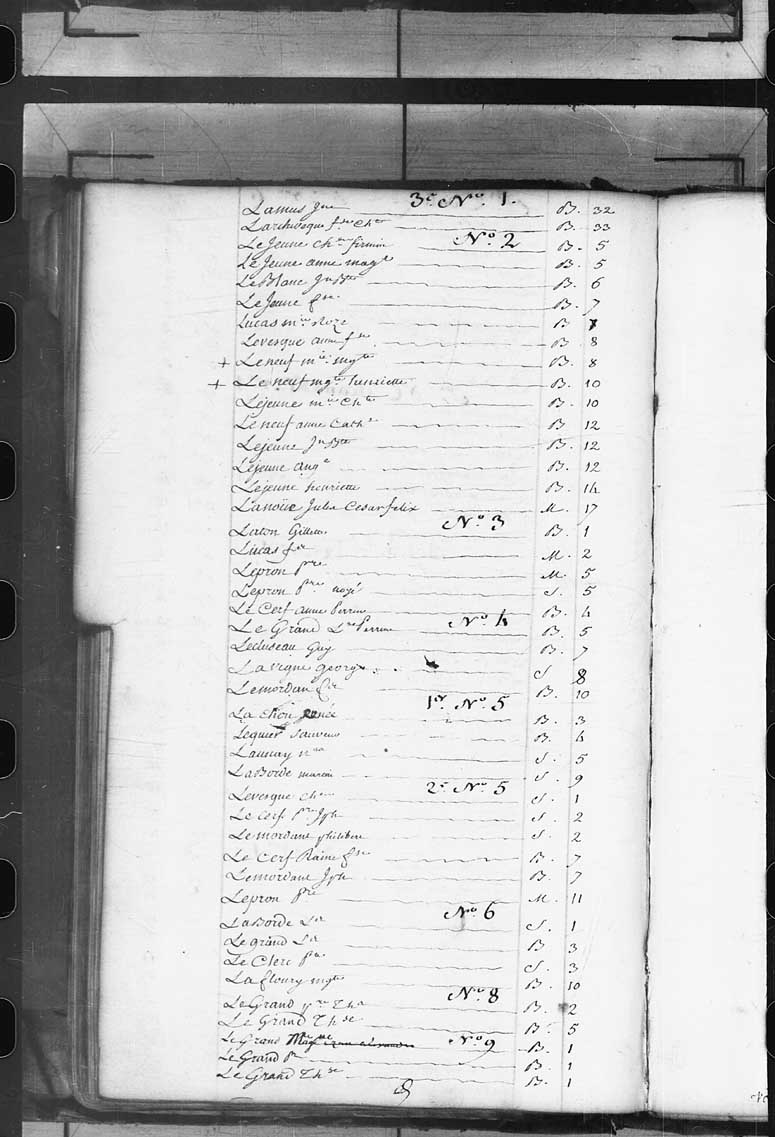 3e No 1.
Lamus Jne B. 32
Larcheveque fse Chte B. 33
No 2
Le Jeune Chte firmin B. 5
Le Jeune anne magte B. 5
Le Blanc Jn Bte B. 6
Le Jeune fse B. 7
Lucas mie Roze B 7
Levesque anne fse B. 8
+ Le neuf mie mgte B. 8
+ Le neuf mgte henriette B. 10
Lejeune mie Chte B. 10
Le neuf anne Cathe B 12
Lejeune Jn Bte B. 12
Lejeune angle B. 12
Lejeune henriette B. 14
Lanoüe Julie Cesar felix M. 17
No 3
Laton Gillette B. 1
Lucas fse M. 2
Lepron Pre M. 5
Lepron Pre noyé S. 5
Le Cerf anne Perrine B. 4
No 4
Le Grand Lse Perrine B. 5
Lecluseau Guy B. 7
Lavigne george S 8
Lemordan fse B. 10
1er No 5
La Chou renée B. 3
Lequer Sauveur B. 4
Launay S. 5
LaBorde marie S. 9
2e No 5
Levesque Chte S. 1
Le Cerf Pre Jph S. 2
Le mordant philibert S. 2
Le Cerf Raine fse B. 7
Lemordant Jph B. 7
Lepron Pre M. 11
No 6
LaBorde Lse S. 1
Le grand Lse B 3
Le Clerc Pre S. 3
La fleury mgte B. 10
No 8
Le Grand The B. 2
Le Grand Thse B. 5
No 9
Le Grand B. 1
Le Grand Pre B. 1
Le Grand Thse B. 1